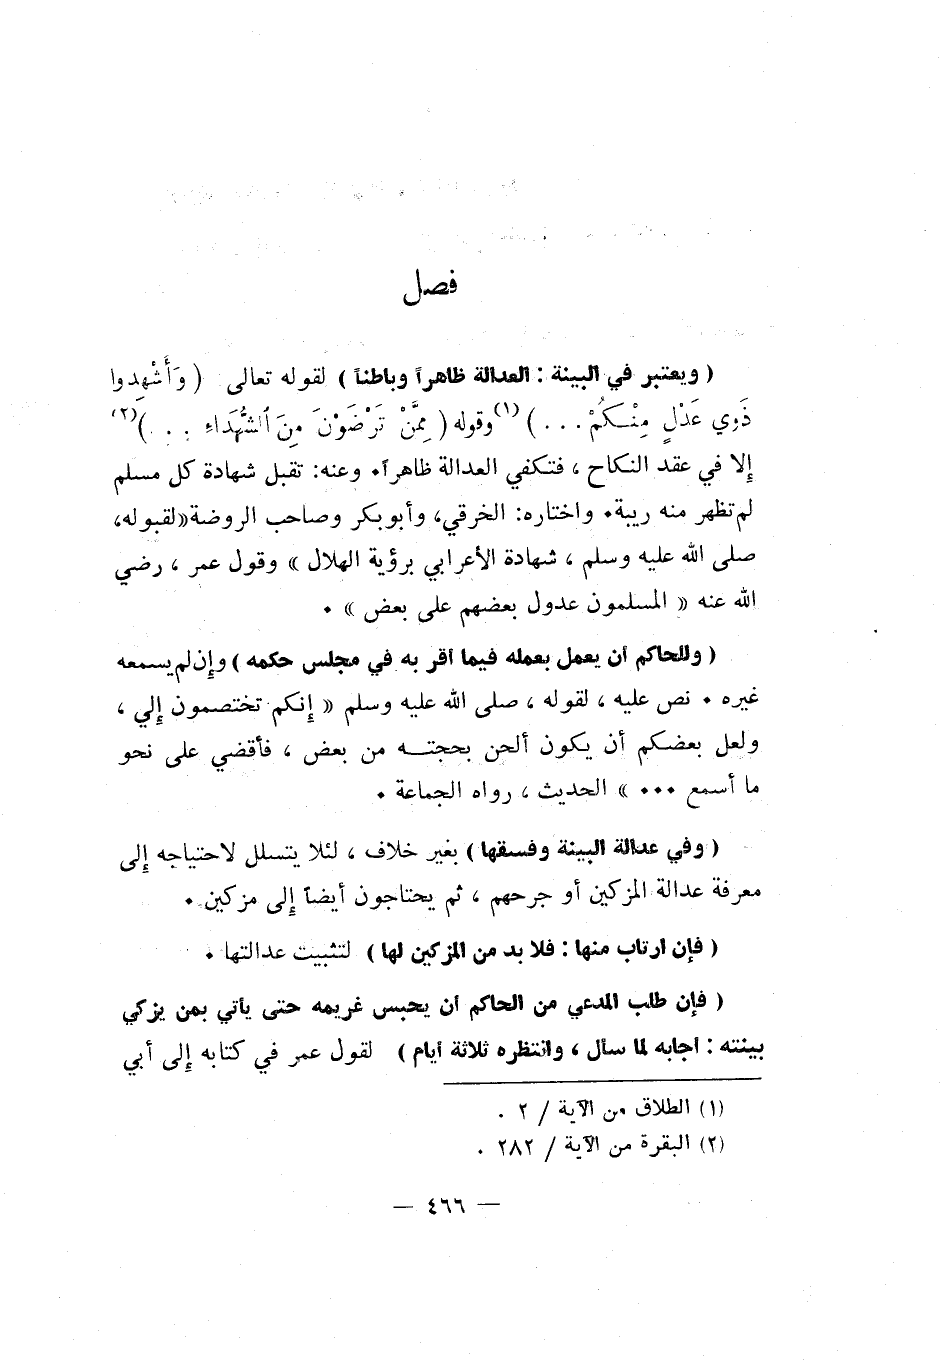 فصل
( ويعتبر في البينة : العدالة ظاهراً وباطناً ) لقوله تعالى ( وَأَشْهِدوا
ذَوِي عَدْلٍ مِنْكُمْ . . . )(١) وقوله ( مِمَّنْ تَرْضَوْنَ مِنَ الشُّهَدَاءِ . . . )(٢)
إلا في عقد النكاح ، فتكفي العدالة ظاهراً. وعنه: تقبل شهادة كل مسلم
لم تظهر منه ريبة. واختاره: الخرقي، وأبوبكر وصاحب الروضة «لقبوله،
صلى الله عليه وسلم ، شهادة الأعرابي برؤية الهلال » وقول عمر ، رضي
الله عنه « المسلمون عدول بعضهم على بعض » .
( وللحاكم أن يعمل بعمله فيما أقر به في مجلس حكمه ) وإن لم يسمعه
غيره . نص عليه ، لقوله ، صلى الله عليه وسلم « إنكم تختصمون إلي ،
ولعل بعضكم أن يكون ألحن بحجتـــه من بعض ، فأقضي على نحو
ما أسمع ... » الحديث ، رواه الجماعة .
( وفي عدالة البينة وفسقها ) بغير خلاف ، لئلا يتسلل لاحتياجه إلى
معرفة عدالة المزكين أو جرحهم ، ثم يحتاجون أيضاً إلى مزكين .
( فإن ارتاب منها : فلا بد من المزكين لها ) لتثبيت عدالتها .
( فإن طلب المدعي من الحاكم أن يحبس غريمه حتى يأتي بمن يزكي
بينته : أجابه لما سأل ، وانتظره ثلاثة أيام ) لقول عمر في كتابه إلى أبي
(١) الطلاق من الآية / ٢ .
(٢) البقرة من الآية / ٢٨٢ .
— ٤٦٦ —